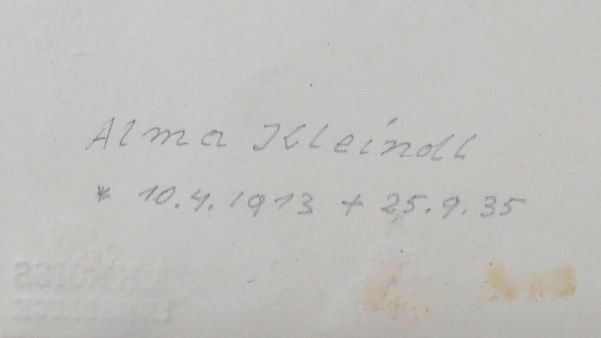 Alma Kleindl
* 10.4.1913 + 25.9.35